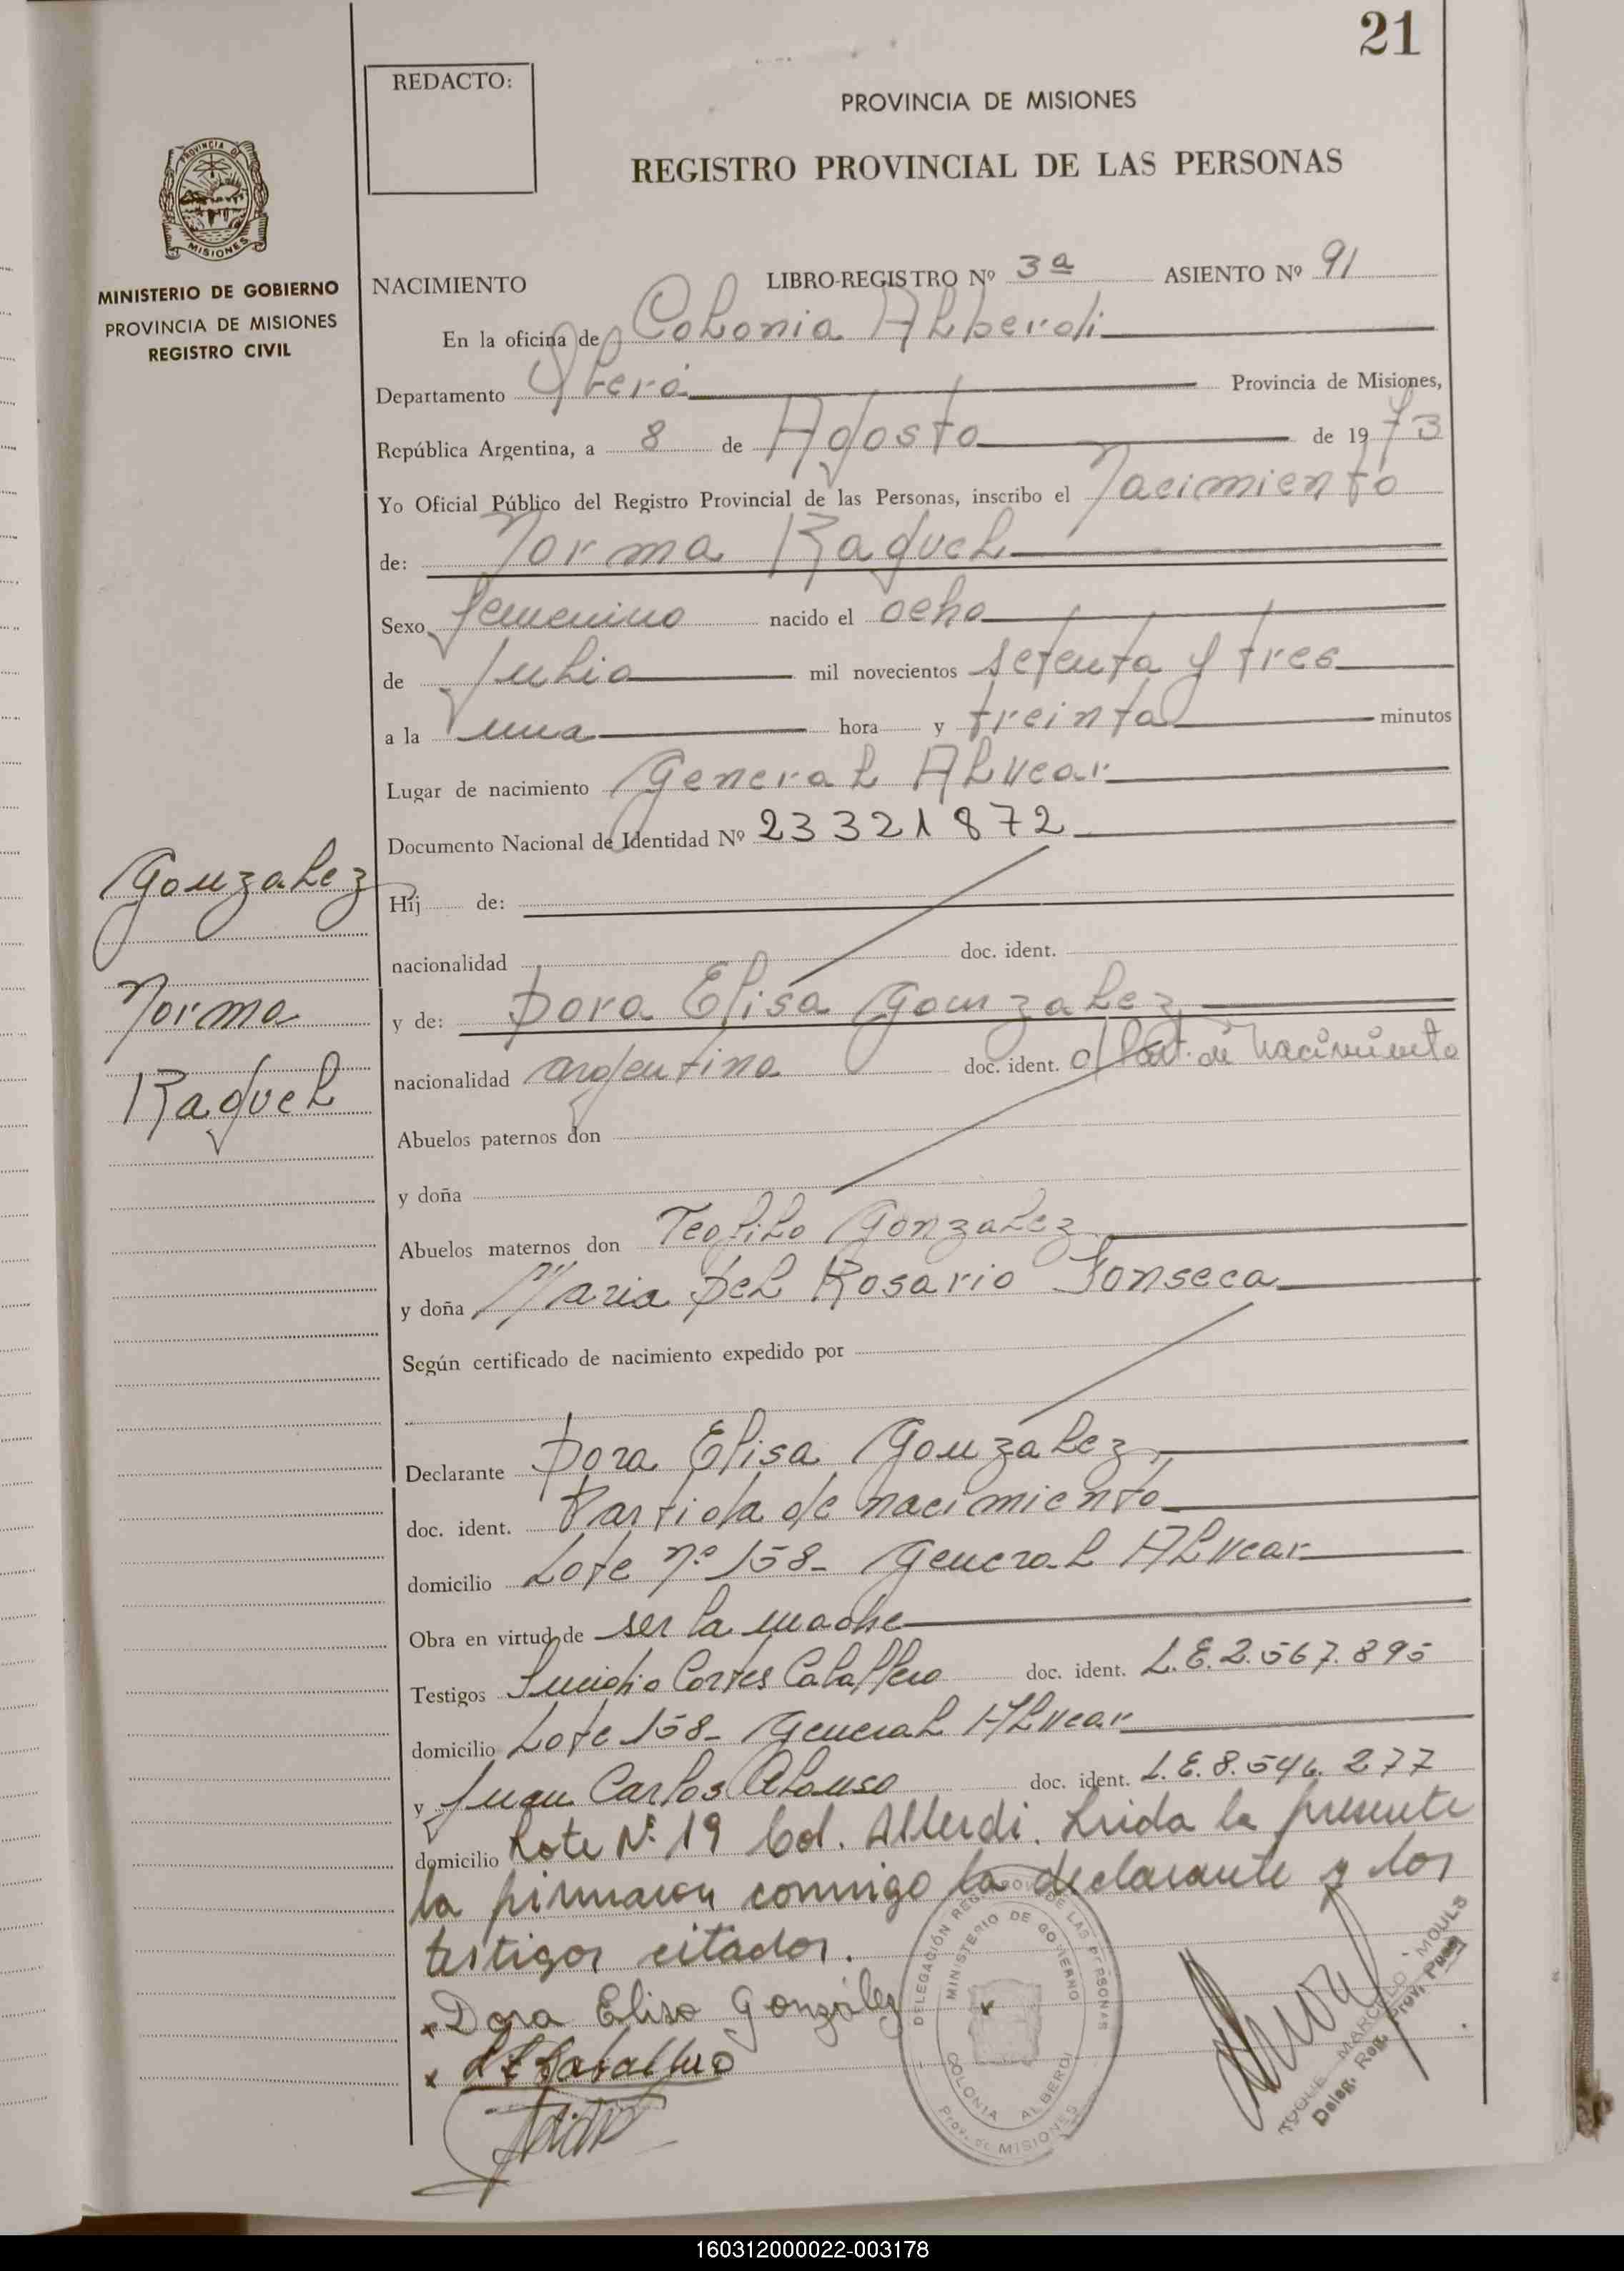 21
REDACTO:
PROVINCIA DE MISIONES
REGISTRO PROVINCIAL DE LAS PERSONAS
PROVINCIA DE
MISIONES
MINISTERIO DE GOBIERNO
PROVINCIA DE MISIONES
REGISTRO CIVIL
NACIMIENTO LIBRO-REGISTRO Nº 3ª ASIENTO Nº 91
En la oficina de Colonia Alberdi
Departamento Oberá Provincia de Misiones,
República Argentina, a 8 de Agosto de 1973
Yo Oficial Público del Registro Provincial de las Personas, inscribo el Nacimiento
de: Norma Raquel
Sexo femenino nacido el ocho
de Julio mil novecientos setenta y tres
a la una hora y treinta minutos
Lugar de nacimiento General Alvear
Documento Nacional de Identidad Nº 23321872
Gonzalez
Hij de:
nacionalidad doc. ident.
Norma
y de: Dora Elisa Gonzalez
nacionalidad argentina doc. ident. c/ Part. de Nacimiento
Raquel
Abuelos paternos don
y doña
Abuelos maternos don Teofilo Gonzalez
y doña Maria Del Rosario Fonseca
Según certificado de nacimiento expedido por
Declarante Dora Elisa Gonzalez,
doc. ident. Partida de nacimiento
domicilio Lote nº 158- General Alvear
Obra en virtud de ser la madre
Testigos Lucidio Cortes Caballero doc. ident. L.E.2.567.895
domicilio Lote 158- General Alvear
y Juan Carlos Alonso doc. ident. L.E.8.546.277
domicilio Lote Nº 19 Col. Alberdi. Leida la presente
la firmaron conmigo la declarante y los
testigos citados.
x Dora Elisa González
x Caballero
DELEGACIÓN REG. PROV. DE LAS PERSONAS
MINISTERIO DE GOBIERNO
COLONIA ALBERDI
Prov. de MISIONES
ROQUE MARCELO MOULS
Deleg. Reg. Prov. Pers.
160312000022-003178